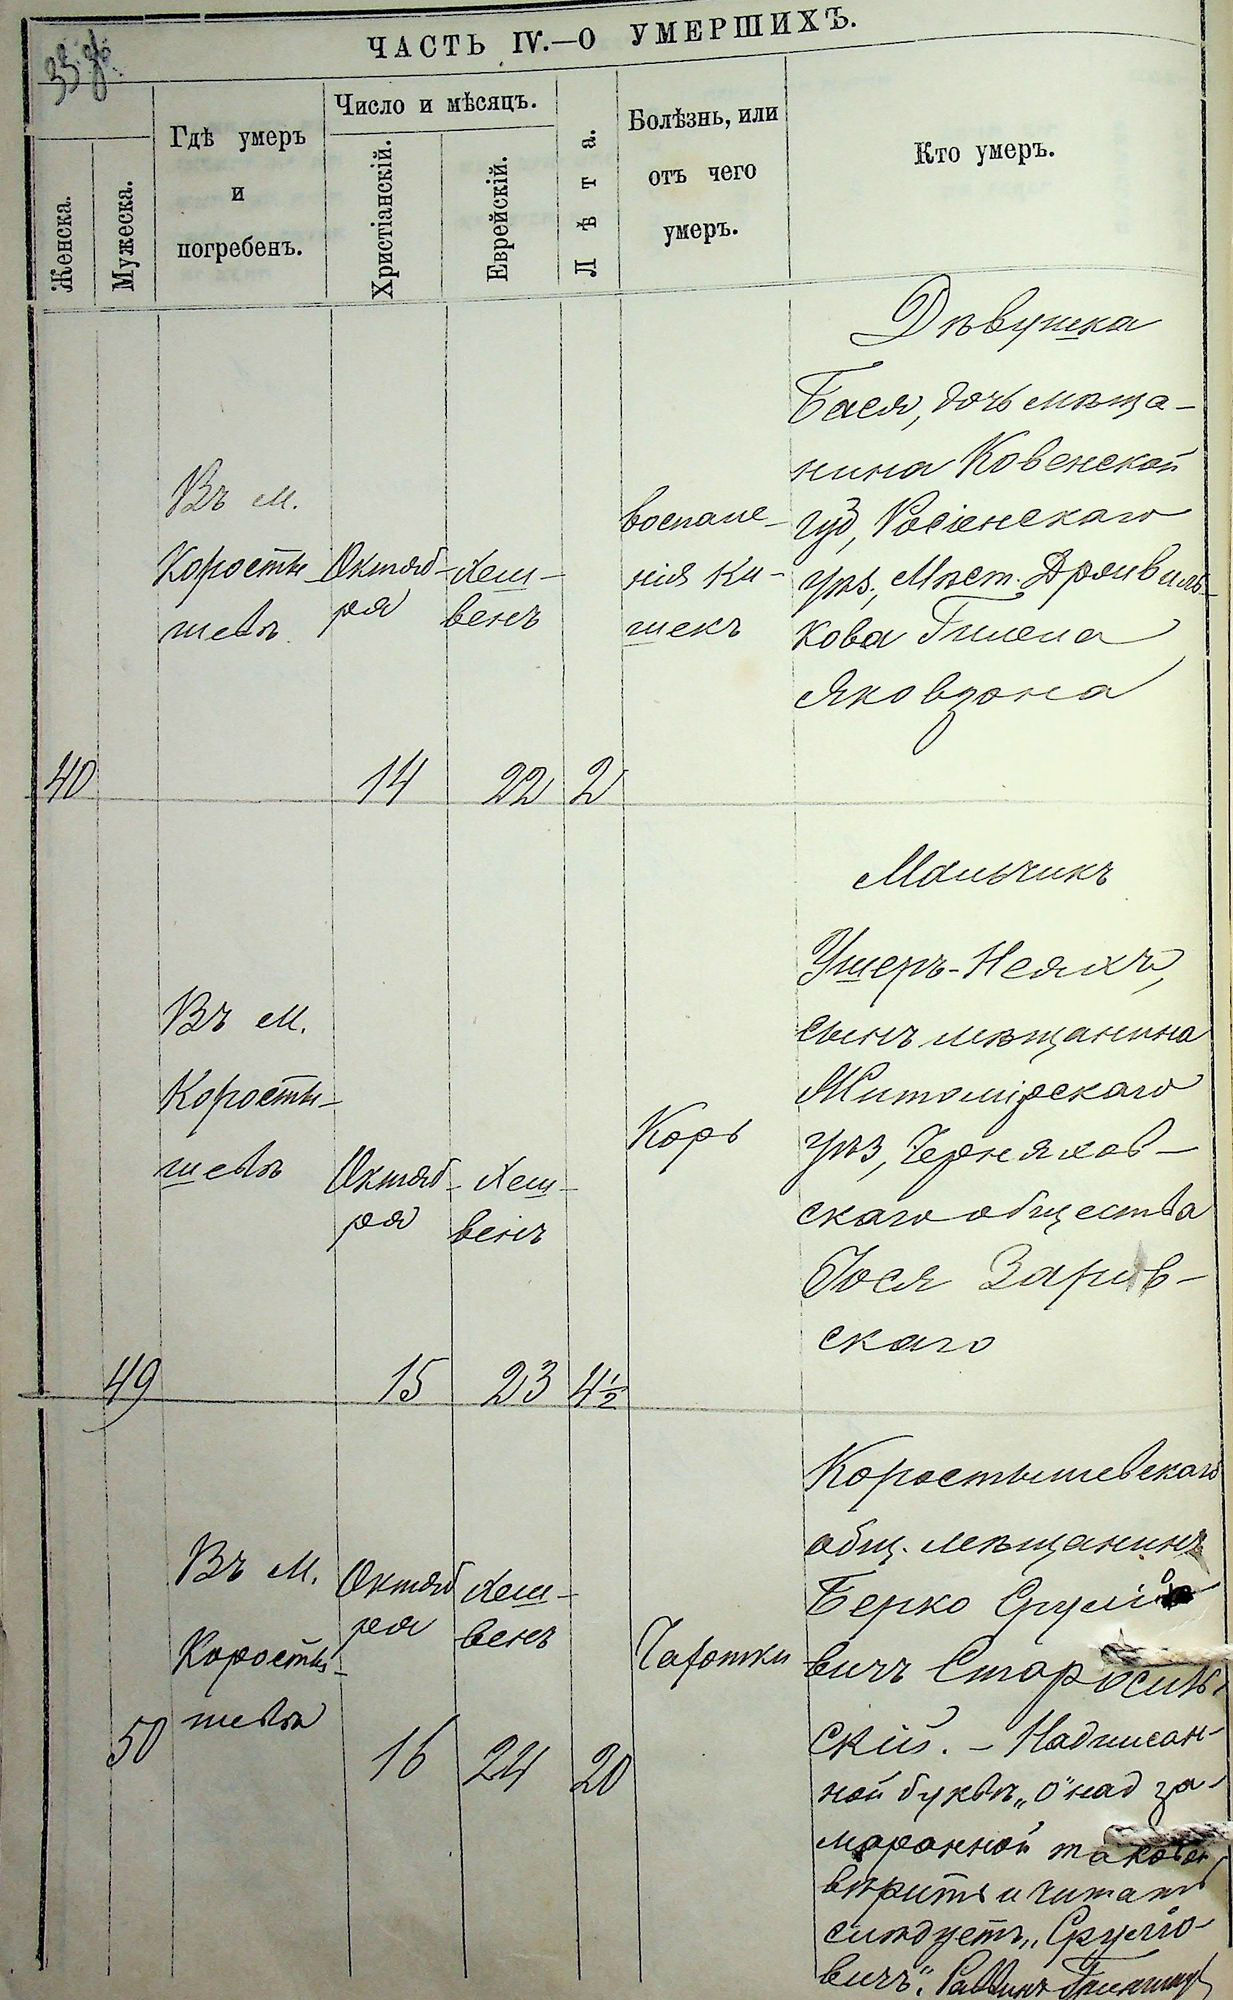 ЧАСТЬ IV.—О УМЕРШИХЪ.
Женска.
Мужеска.
Гдѣ умеръ
и
погребенъ.
Число и мѣсяцъ.
Христіанскій.
Еврейскій.
Лѣта.
Болѣзнь, или
отъ чего
умеръ.
Кто умеръ.
40
Въ м.
Корости-
шевѣ
Октяб-
ря
14
Хеш-
венъ
22
2
воспале-
нія ки-
шекъ
Дѣвушка
Бася, дочь мѣща-
нина Ковенской
губ, Росіенскаго
уѣз., Мѣст.
кова
Яковзона
49
Въ м.
Корости-
шевѣ
Октяб-
ря
15
Хеш-
венъ
23
4½
Корь
Мальчикъ
Ушеръ-
сынъ мѣщанина
Житомірскаго
уѣз, Черняхов-
скаго общества
Іося Зарив-
скаго
50
Въ м.
Коросты-
шевѣ
Октяб
ря
16
Хеш-
венъ
24
20
Чахотки
Коростышевскаго
общ. мѣщанинъ
Берко Срулiо
вичъ Старосель-
скій. — Надписан-
ной буквѣ „о" над за-
маранной таковой
вѣрить и читать
слѣдуетъ „Сруліо-
вичъ". Раввинъ